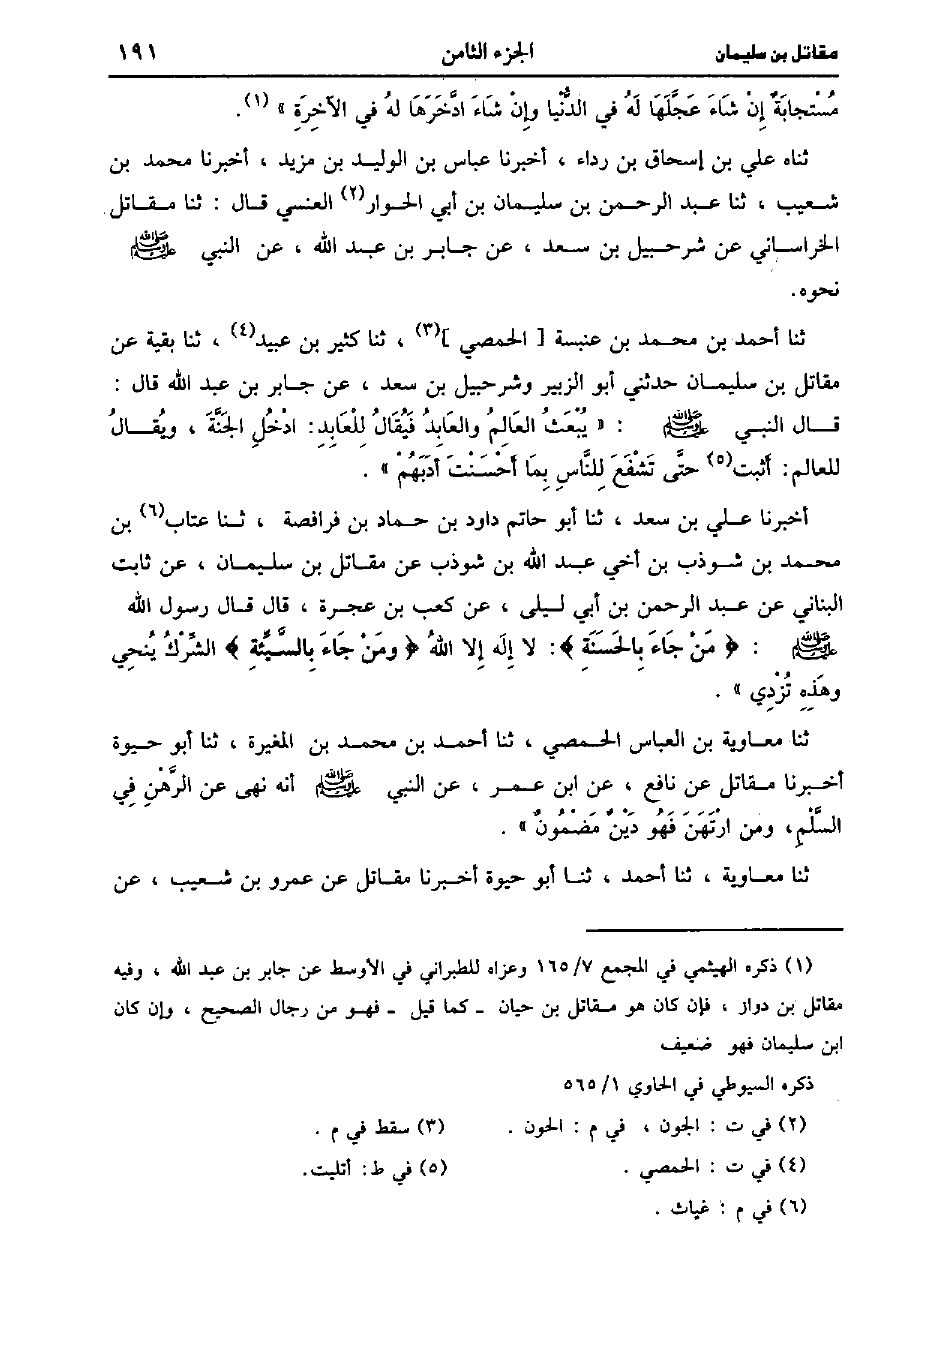 مقاتل بن سليمان الجزء الثامن ١٩١
مُسْتجابَةٌ إِنْ شَاءَ عَجَّلَهَا لَهُ في الدُّنْيا وإِنْ شَاءَ ادَّخَرَهَا لهُ في الآخِرَةِ » (١).
ثناه علي بن إسحاق بن رداء ، أخبرنا عباس بن الوليد بن مزيد ، أخبرنا محمد بن
شعيب ، ثنا عبد الرحمن بن سليمان بن أبي الحوار(٢) العنسي قال : ثنا مقاتل
الخراساني عن شرحبيل بن سعد ، عن جابر بن عبد الله ، عن النبي ﷺ
نحوه.
ثنا أحمد بن محمد بن عنبسة [ الحمصي ](٣) ، ثنا كثير بن عبيد(٤) ، ثنا بقية عن
مقاتل بن سليمان حدثني أبو الزبير وشرحبيل بن سعد ، عن جابر بن عبد الله قال :
قال النبي ﷺ : « يُبْعَثُ العَالِمُ والعَابِدُ فَيُقَالُ لِلْعَابِدِ: ادْخُلِ الجَنَّةَ ، ويُقَالُ
للعالم: أثبت(٥) حتَّى تَشْفَعَ لِلنَّاسِ بِمَا أحْسَنْتَ أدَبَهُمْ » .
أخبرنا علي بن سعد ، ثنا أبو حاتم داود بن حماد بن فرافصة ، ثنا عتاب(٦) بن
محمد بن شوذب بن أخي عبد الله بن شوذب عن مقاتل بن سليمان ، عن ثابت
البناني عن عبد الرحمن بن أبي ليلى ، عن كعب بن عجرة ، قال قال رسول الله
ﷺ : ﴿ مَنْ جَاءَ بِالحَسَنَةِ ﴾: لا إِلَه إلا اللهُ ﴿ ومَنْ جَاءَ بِالسَّيِّئةِ ﴾ الشِّرْكُ يُنحي
وهَذِهِ تُرْدِي » .
ثنا معاوية بن العباس الحمصي ، ثنا أحمد بن محمد بن المغيرة ، ثنا أبو حيوة
أخبرنا مقاتل عن نافع ، عن ابن عمر ، عن النبي ﷺ أنه نهى عن الرَّهْنِ فِي
السَّلَمِ، ومن ارْتَهَنَ فَهُوَ دَيْنٌ مَضْمُونٌ » .
ثنا معاوية ، ثنا أحمد ، ثنا أبو حيوة أخبرنا مقاتل عن عمرو بن شعيب ، عن
(١) ذكره الهيثمي في المجمع ١٦٥/٧ وعزاه للطبراني في الأوسط عن جابر بن عبد الله ، وفيه
مقاتل بن دواز ، فإن كان هو مقاتل بن حيان ـ كما قيل ـ فهو من رجال الصحيح ، وإن كان
ابن سليمان فهو ضعيف
ذكره السيوطي في الحاوي ٥٦٥/١
(٢) في ت : الجون ، في م : الحون . (٣) سقط في م .
(٤) في ت : الحمصي . (٥) في ط: أتليت.
(٦) في م : غياث .